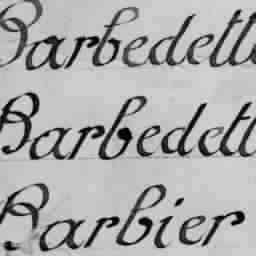 Barbedette
Barbedett
Barbier